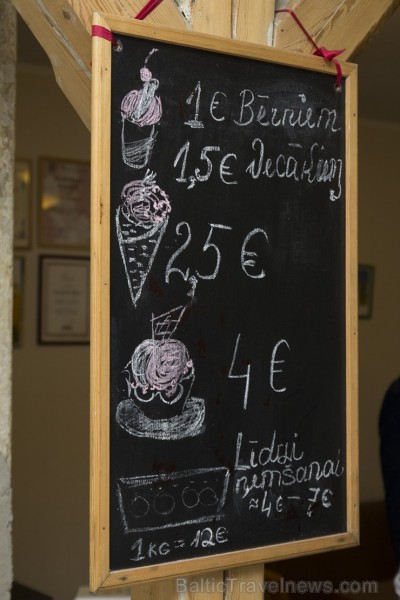 1 € Bērniem
1,5 € Vecākiem
2,5 €
4 €
Līdzi
ņemšanai
≈4€ - 7€
1KG = 12€
© BalticTravelnews.com